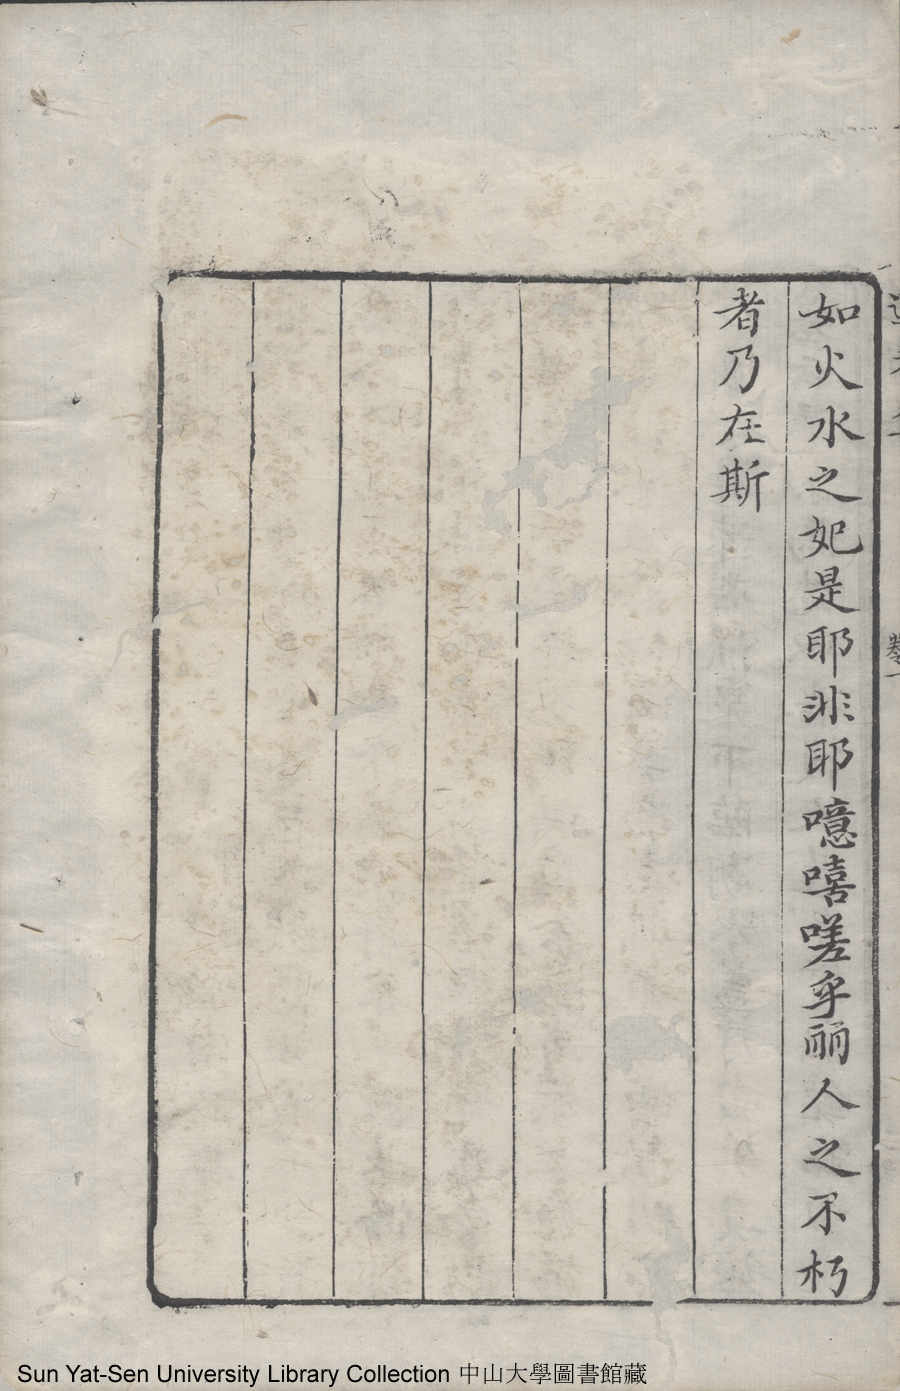 如火水之妃是耶非耶噫嘻嗟乎丽人之不朽
者乃在斯
卷一
Sun Yat-Sen University Library Collection 中山大學圖書館藏